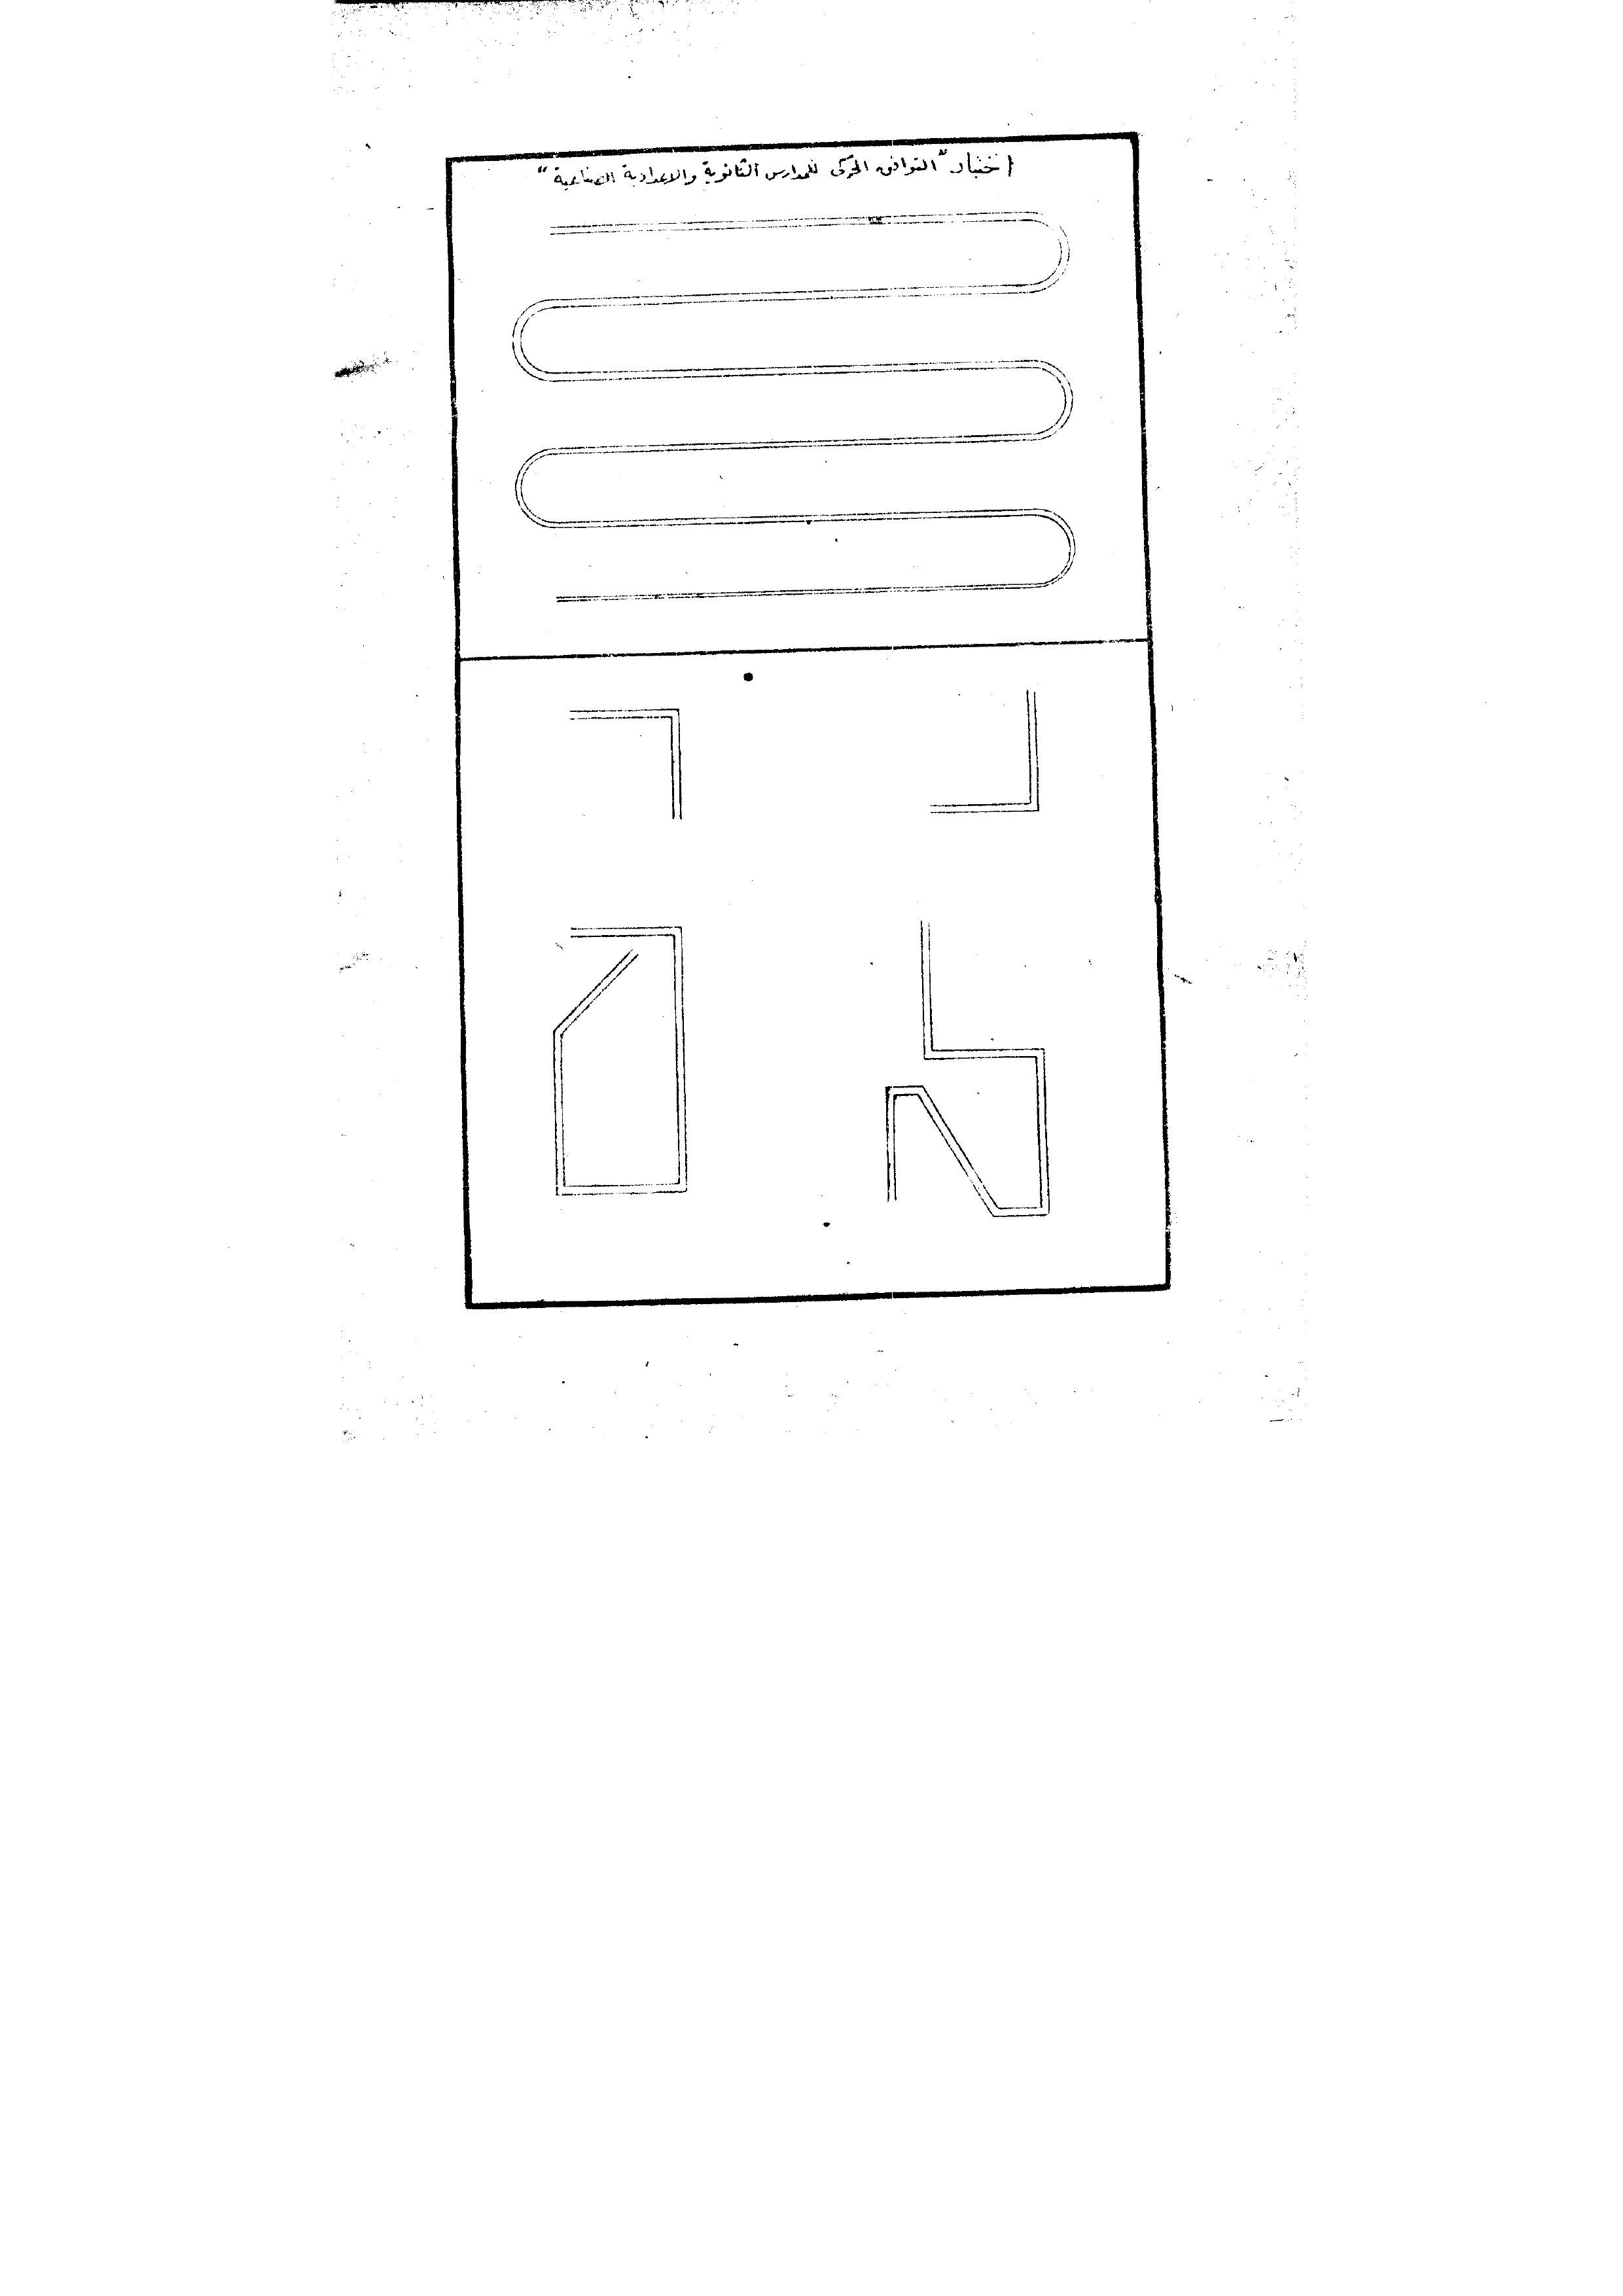 اختبار "التوافق الحركى للمدارس الثانوية والاعدادية الصناعية"